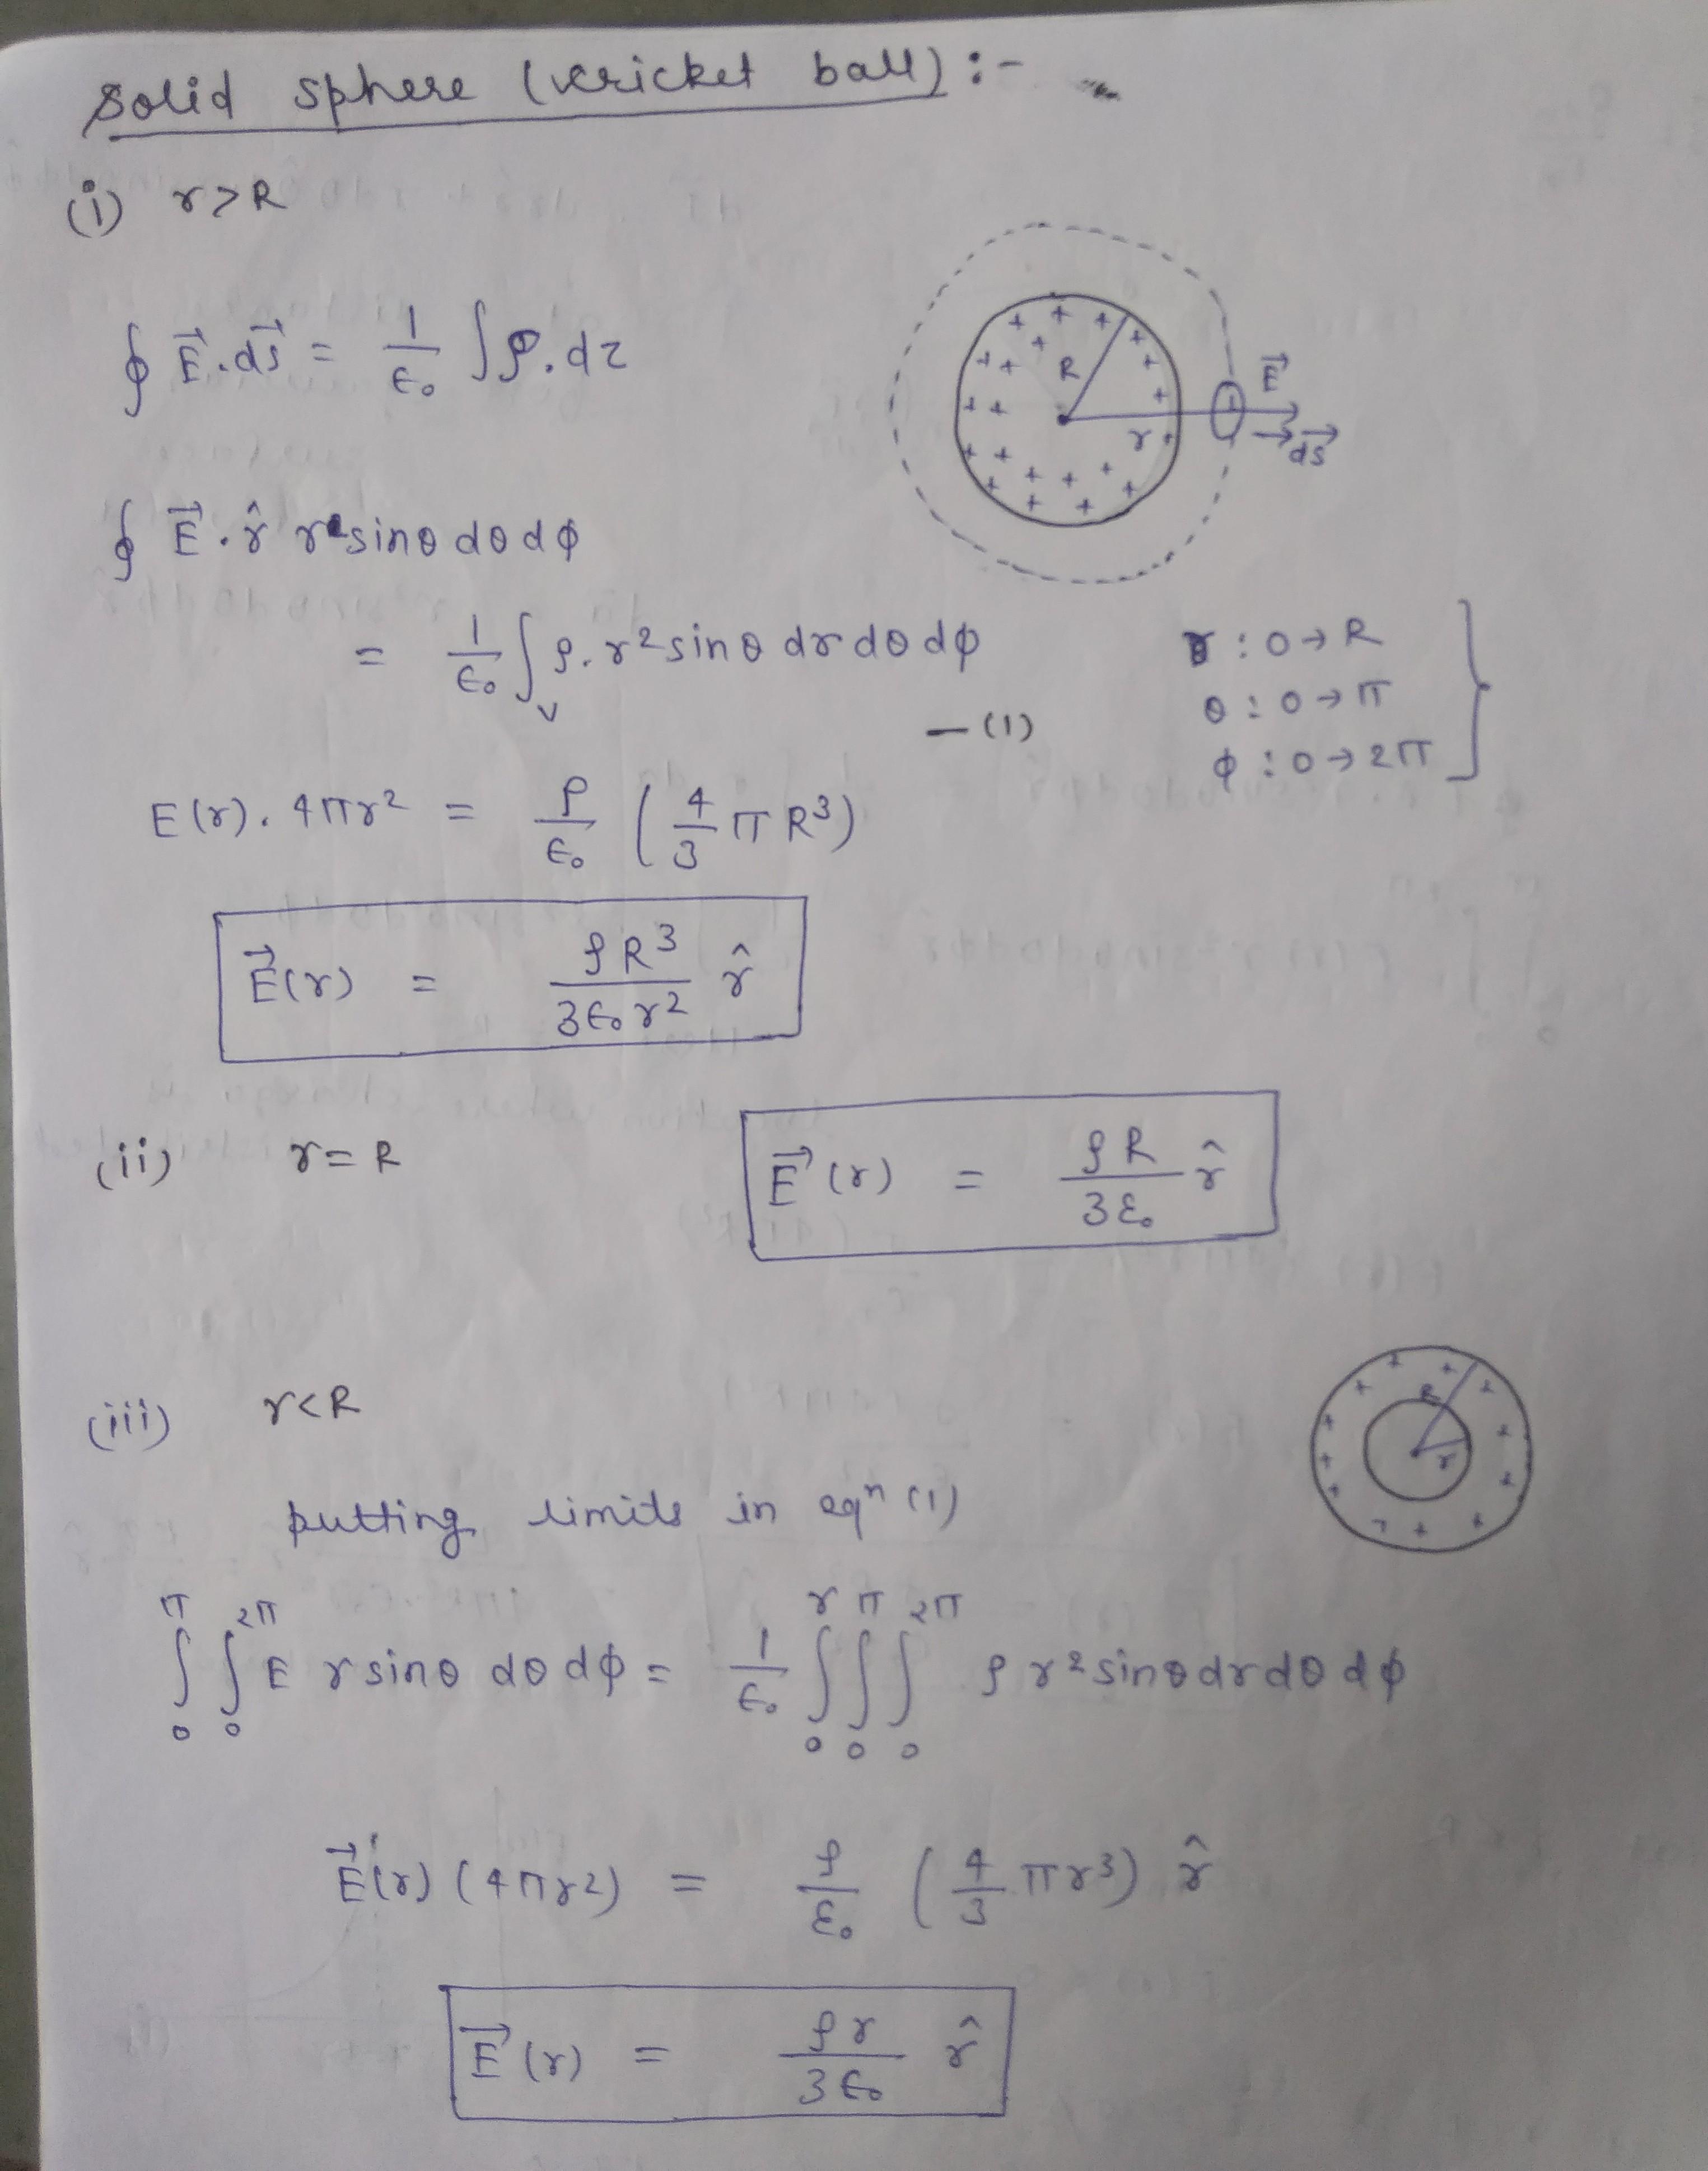 Solid sphere (cricket ball) :-
(i) r>R
∮ E⃗.ds⃗ = 1/ϵ₀ ∫ρ.dτ
R
r
E⃗
ds⃗
∮ E⃗.r̂ r²sinθ dθ dϕ
= 1/ϵ₀ ∫ᵥ ρ.r²sinθ dr dθ dϕ —(1)
r : 0→R
θ : 0→π
ϕ : 0→2π
E(r). 4πr² = ρ/ϵ₀ (4/3 πR³)
E⃗(r) = ρR³/3ϵ₀r² r̂
(ii) r=R E⃗(r) = ρR/3ε₀ r̂
(iii) r<R
R
r
putting limits in eqⁿ (1)
∫₀^π ∫₀^2π E r sinθ dθ dϕ = 1/ϵ₀ ∫₀^r ∫₀^π ∫₀^2π ρ r²sinθ dr dθ dϕ
E⃗(r) (4πr²) = ρ/ε₀ (4/3 πr³) r̂
E⃗(r) = ρr/3ϵ₀ r̂